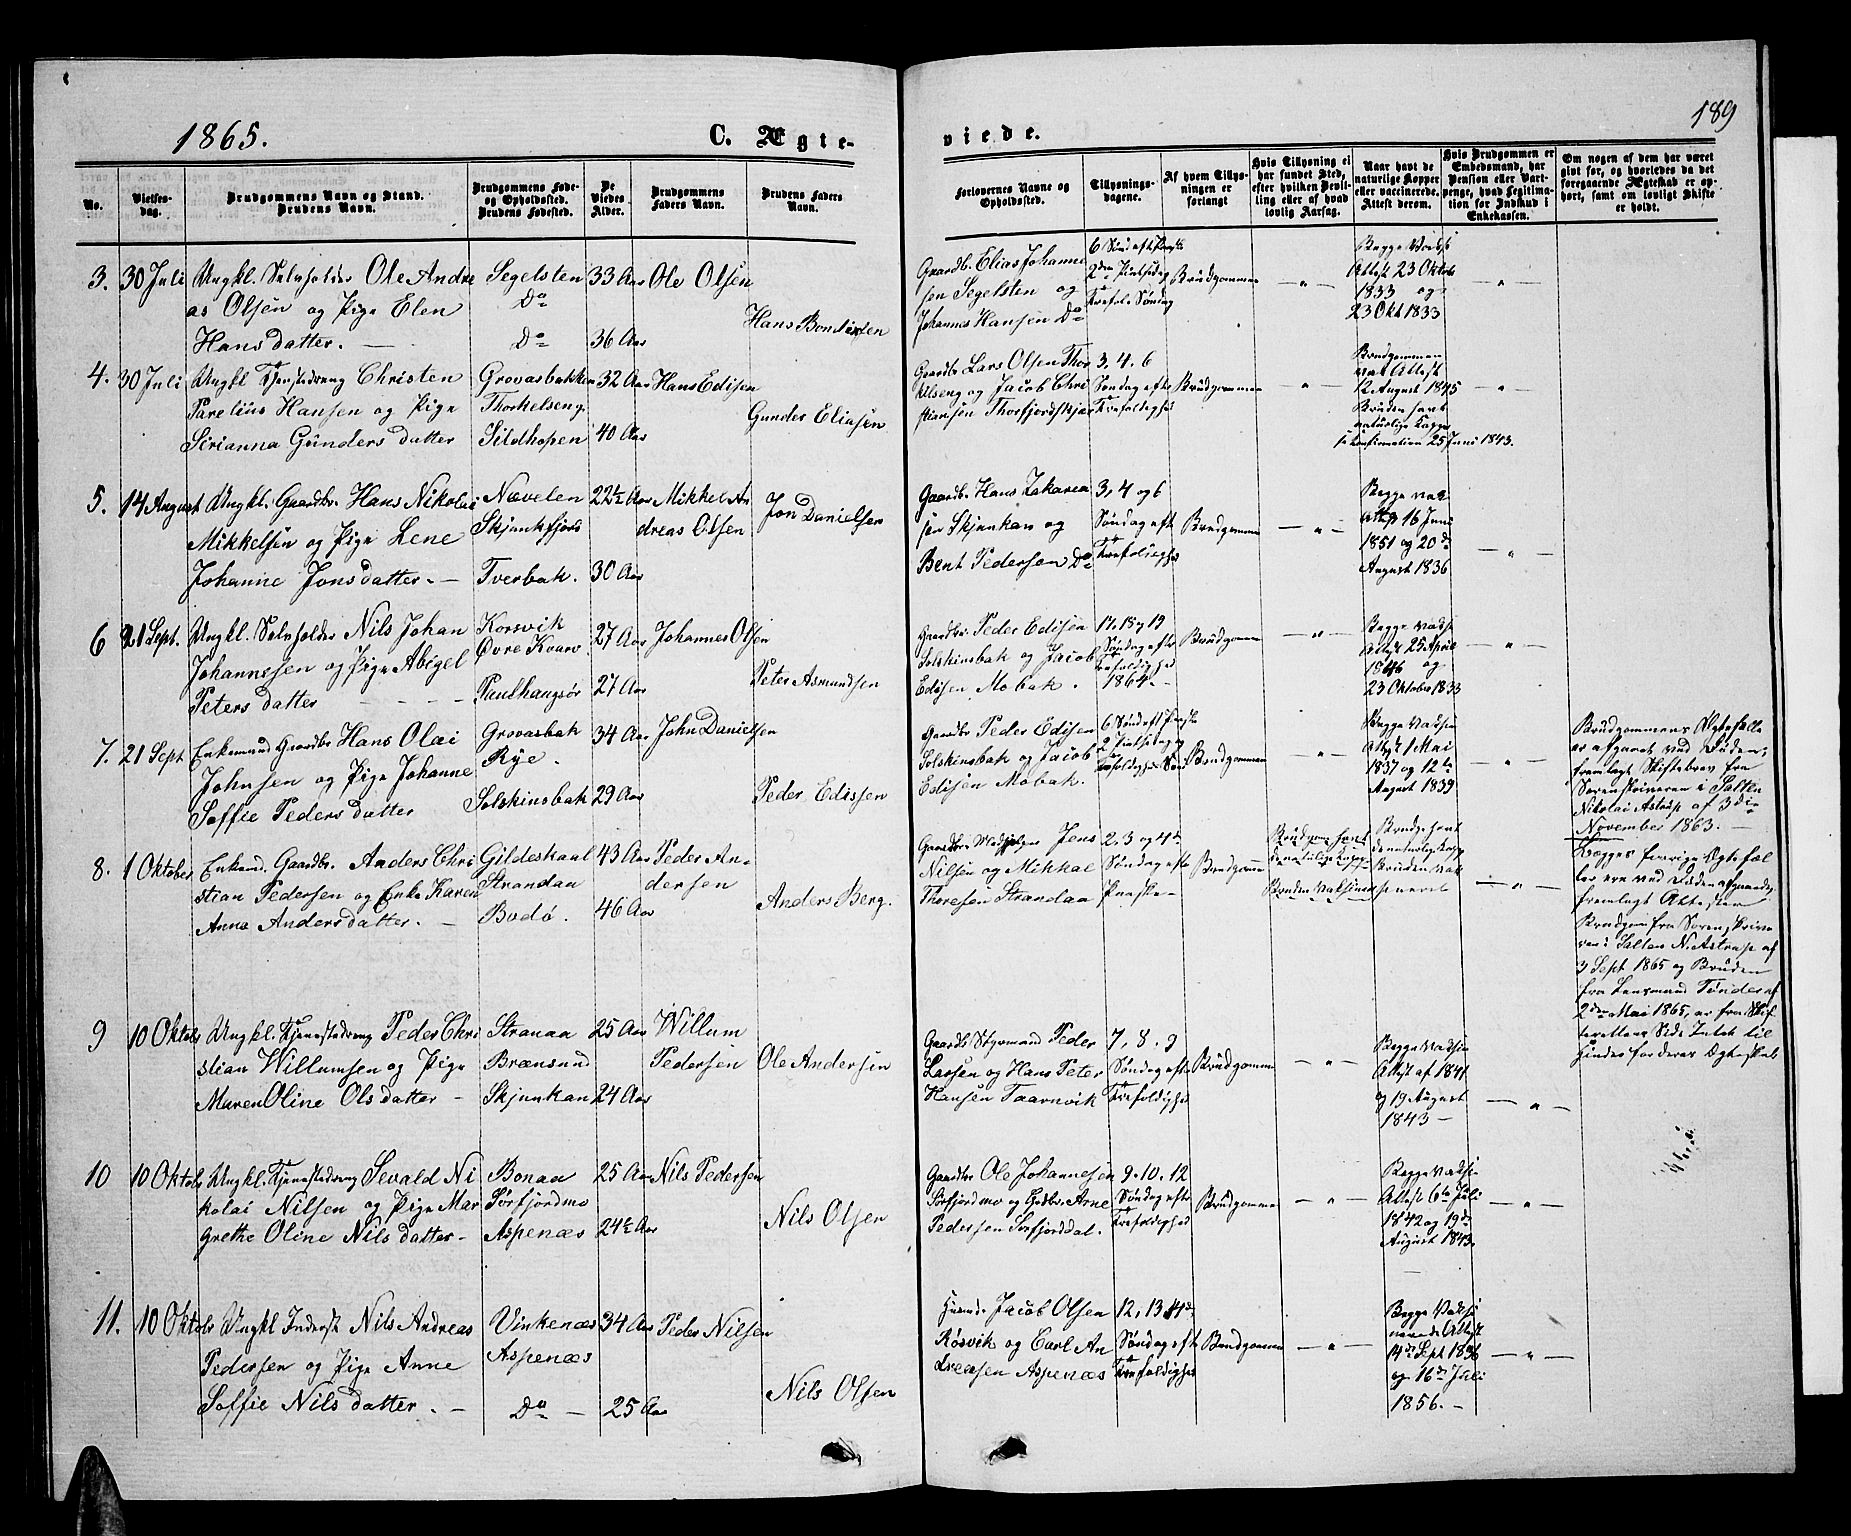 189
1865.
C. Ægte-
viede.
No.
Vielses-
dag.
Brudgommens Navn og Stand.
Brudens Navn.
Brudgommens Føde-
og Opholdssted.
Brudens Fødested.
De
Viedes
Alder.
Brudgommens
Faders Navn.
Brudens Faders
Navn.
Forlovernes Navne og
Opholdssted.
Tillysnings-
dagene.
Af hvem Tillys-
ningen er
forlangt
Hvis Tillysning ei
har fundet Sted,
efter hvilken Bevil-
ling eller af hvad
lovlig Aarsag.
Naar havt de
naturlige Kopper
eller vaccinerede.
Attest derom.
Hvis Brudgommen er
Embedsmand, har
Pension eller Vart-
penge, hvad Legitima-
tion for Indskud i
Enkekassen.
Om nogen af dem har været
gift før, og hvorledes da det
foregaaende Ægteskab er op-
hørt, samt om lovligt Skifte
er holdt.
3. 30 Juli Ungkl. Selvholder Ole Andre
as Olsen og Pige Elen
Hansdatter.
Segelsten
Do
Do
33 Aar
36 Aar
Ole Olsen
Hans Bendixen
Gaardb. Elias Johanne
sen Segelsten og
Johannes Hansen Do
6 Sønd eft Paaske
2den Pintsedag
Trefol. Søndag
Brudgommen
Begge Vaks
Attest 23 Oktob
1833 og
23 Okt 1833
4. 30 Juli Ungkl Tjenestedreng Christen
Parelius Hansen og Pige
Sirianna Gunders datter
Grovasbakken
Thorkelseng
Sildhopen
32 Aar
40 Aar
Hans Edisen
Gunder Eliasen
Gaardb Lars Olsen Thor
kelseng og Jacob Chri
stiansen Thorfjordskjær
3. 4. 6
Søndag efter
Trefoldighed
Brudgommen
Brudgommen
vak Attest
12 August 1845
Bruden havt
naturlige Kopper
se konfirmation 25 Juni 1843.
5. 14 August Ungkl. Gaardbr. Hans Nikolai
Mikkelsen og Pige Lene
Johanne Jonsdatter
Nævelen
Skjunkfjord
Tverbak.
22½ Aar
30 Aar
Mikkel An
dreas Olsen
Jon Danielsen
Gaardb. Hans Zakaria
sen Skjunkan og
Bent Pedersen Do
3, 4 og 6
Søndag eft
Trefoldighed
Brudgommen
Begge vak
Attest 16 Juni
1851 og 20de
August 1836
6 21 Sept. Ungkl. Selvholder Nils Johan
Johannesen og Pige Abigel
Peters datter
Korsvik
Øvre Kvarv
Paulhangsør
27 Aar
27 Aar
Johannes Olsen
Peter Asmundsen
Gaardbr. Peder Edisen
Solskinsbak og Jacob
Edisen Mobak.
17. 18 og 19
Søndag efter
Trefoldighed
1864.
Brudgommen
Begge Vaks
Attest 25 April
1846 og
23 Oktober 1833
7. 21 Sept Enkemand Gaardbr Hans Olai
Johnsen og Pige Johanne
Soffie Peders datter
Grovasbak
Rye.
Solskinsbak
34 Aar
29 Aar
John Danielsen
Peder Edissen
Gaardbr Peder Edisen
Solskinsbak og Jacob
Edisen Mobak.
6 Sønd eft Paaske
2 Pintsedag og
Trefoldighed Sønd
Brudgommen
Begge Vaksin
Attest 1 Mai
1837 og 12te
August 1839
Brudgommens Ægtefælle
er afgaaet ved Døden,
fremlagt Skiftebrev fra
Sorenskriveren i Salten
Nikolai Astrup af 3die
November 1863.
8. 1 Oktober Enkemd. Gaardbr. Anders Chri
stian Pedersen og Enke Karen
Anna Andersdatter.
Gildeskaal
Strandaa
Bodø.
43 Aar
46 Aar
Peder An-
dersen
Anders Berg.
Gaardbr Medhjelper Jens
Nilsen og Mikkal
Thoresen Strandaa
2. 3 og 4de
Søndag efter
Paaske
Brudgommen
Brudgom havt
de naturlige Kopper
Bruden Vaksineret
Brudg. havt
de naturlige Kopp
Bruden Vak
sineret
Begges forrige Ægtefæl
ler ere ved Døden afgaaede,
fremlagt Attester
Brudgom fra Sorenskrive
ren i Salten N. Astrup af
3 Sept 1865 og Bruden
fra Lensmand Tønder af
2den Mai 1865, er fra Skif
terettens Side Intet til
Hinder for deres Ægteskab
9 10 Oktob Ungkl. Tjenestedreng Peder Chri
stian Willumsen og Pige
Maren Oline Ols datter
Stranaa
Brænsund
Skjunkan
25 Aar
24 Aar
Willum
Pedersen
Ole Andersen
Gaardb. Styrmand Peder
Lassen og Hans Peter
Hansen Taarnvik
7, 8. 9
Søndag efter
Trefoldighed
Brudgommen
Begge Vaksin
Attest af 1841
og 19 August
1843
10 10 Oktob Ungkl. Tjenestedreng Sevald Ni
kolai Nilsen og Pige Mar
grethe Oline Nils datter
Bonaa
Sørfjordmo
Aspenæs
25 Aar
24½ Aar
Nils Pedersen
Nils Olsen
Gaardbr Ole Johannesen
Sørfjordmo og Gdbr. Arne
Pedersen Sørfjorddal.
9. 10. 12
Søndag efter
Trefoldighed
Brudgommen
Begge Vaksi
Attest 6te Juli
1842 og 19de
August 1843
11. 10 Oktob Ungkl Inderst Nils Andreas
Pedersen og Pige Anne
Soffie Nils datter.
Vinkenæs
Aspenæs
Do
34 Aar
25 Aar
Peder Nilsen
Nils Olsen
Husmd. Jacob Olsen
Røsvik og Carl An
dreasen Aspenæs
12, 13. 14de
Søndag eft
Trefoldighed
Brudgommen
Begge Vaksi
nerede Attest
14de Sept 1836
og 16de Juli
1856.